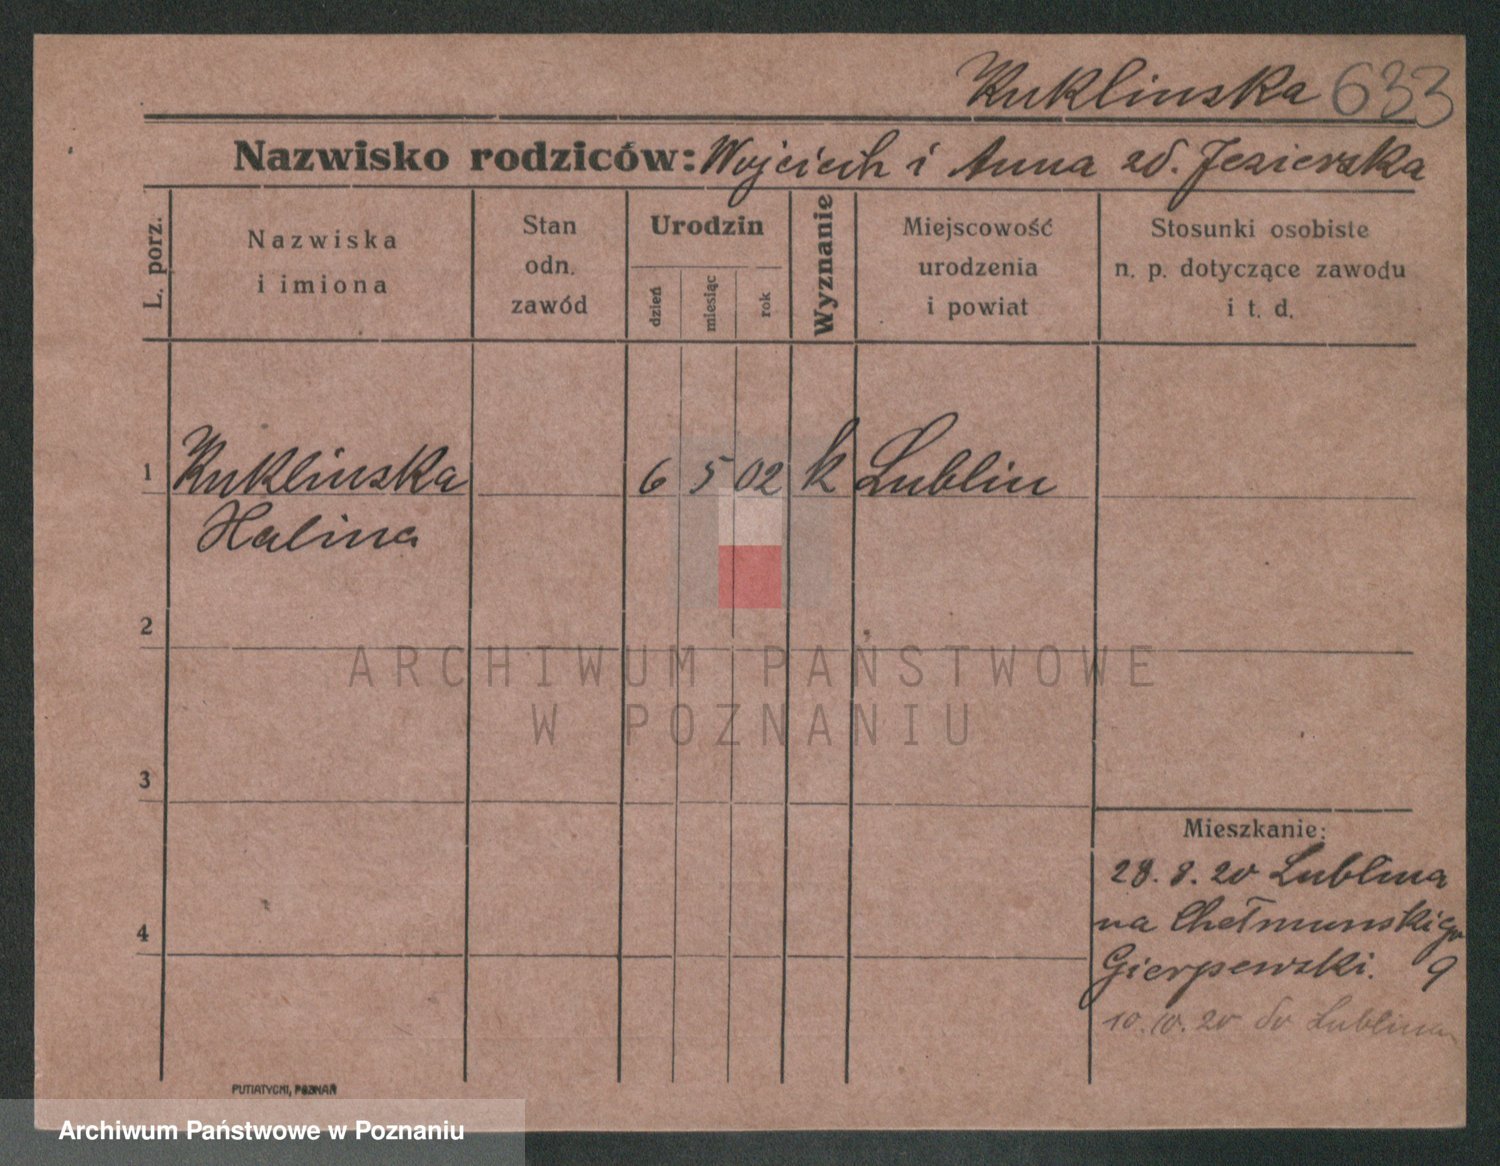 Kuklinska 633
Nazwisko rodziców: Wojciech i Anna zd. Jezierska
L. porz.
Nazwiska
i imiona
Stan
odn.
zawód
Urodzin
dzień
miesiąc
rok
Wyznanie
Miejscowość
urodzenia
i powiat
Stosunki osobiste
n. p. dotyczące zawodu
i t. d.
1 Kuklinska 6 5 02 k Lublin
Halina
2
ARCHIWUM PAŃSTWOWE
W POZNANIU
3
Mieszkanie:
28. 8. 20 Lublina
na Chełmonskiego
4
9
10. 10. 20 do Lublina
PUTIATYCKI, POZNAŃ
Archiwum Państwowe w Poznaniu